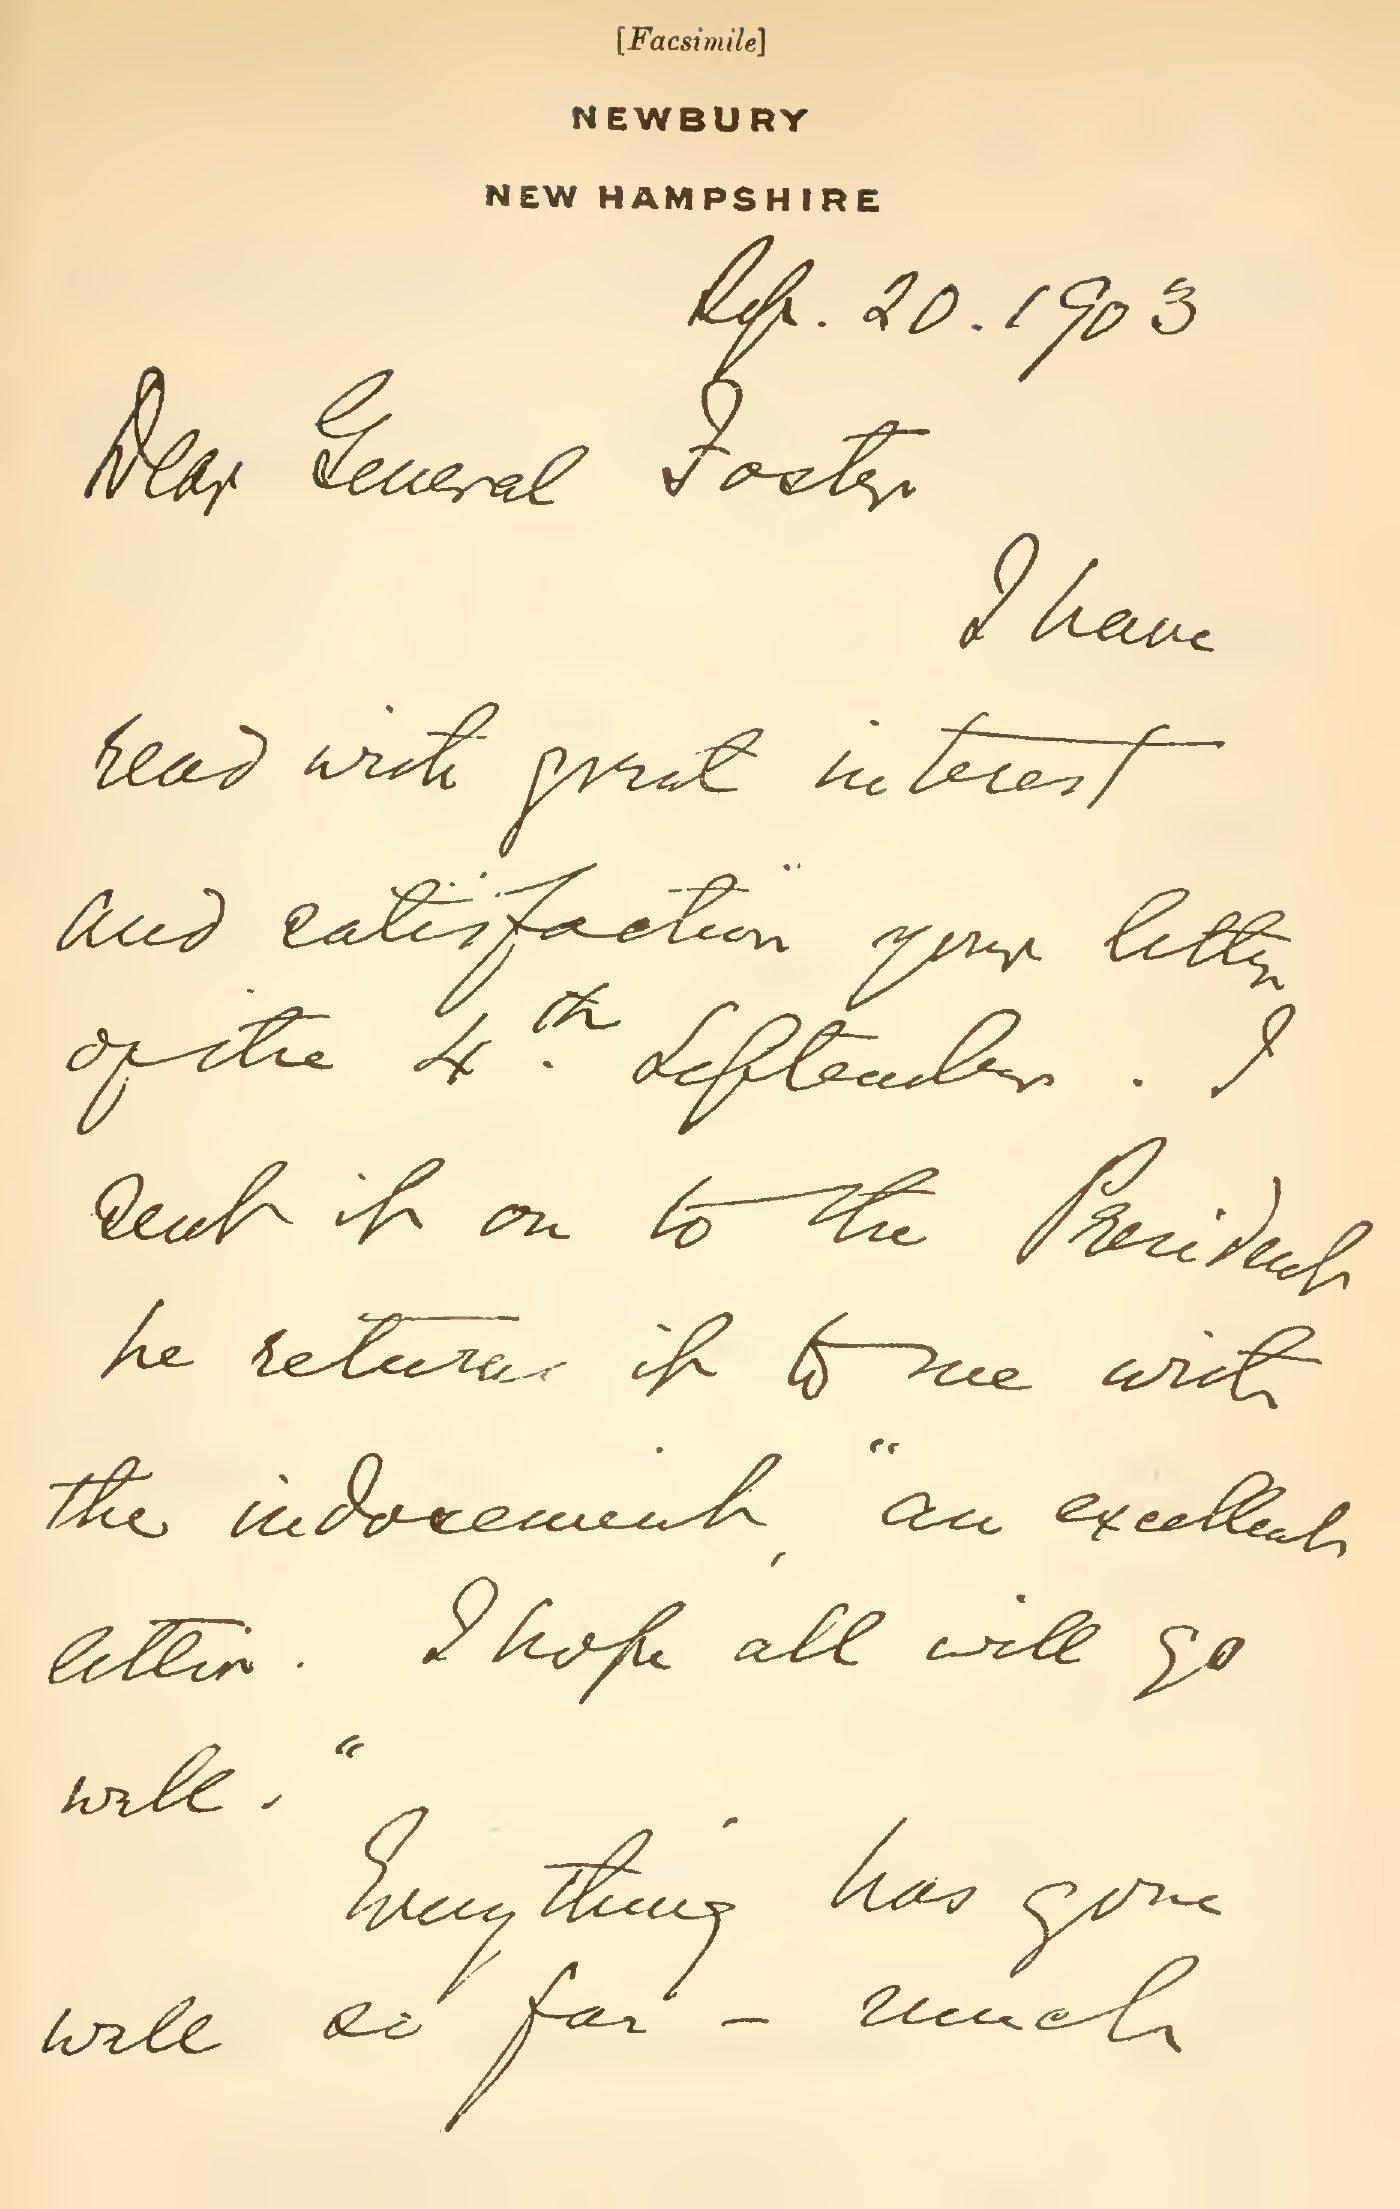 [Facsimile]
NEWBURY
NEW HAMPSHIRE
Sep. 20. 1903
Dear General Foster
I have
read with great interest
and satisfaction your letter
of the 4th. September. I
sent it on to the President
he returns it to me with
the indorsement, "an excellent
letter. I hope all will go
well."
Everything has gone
well so far — much